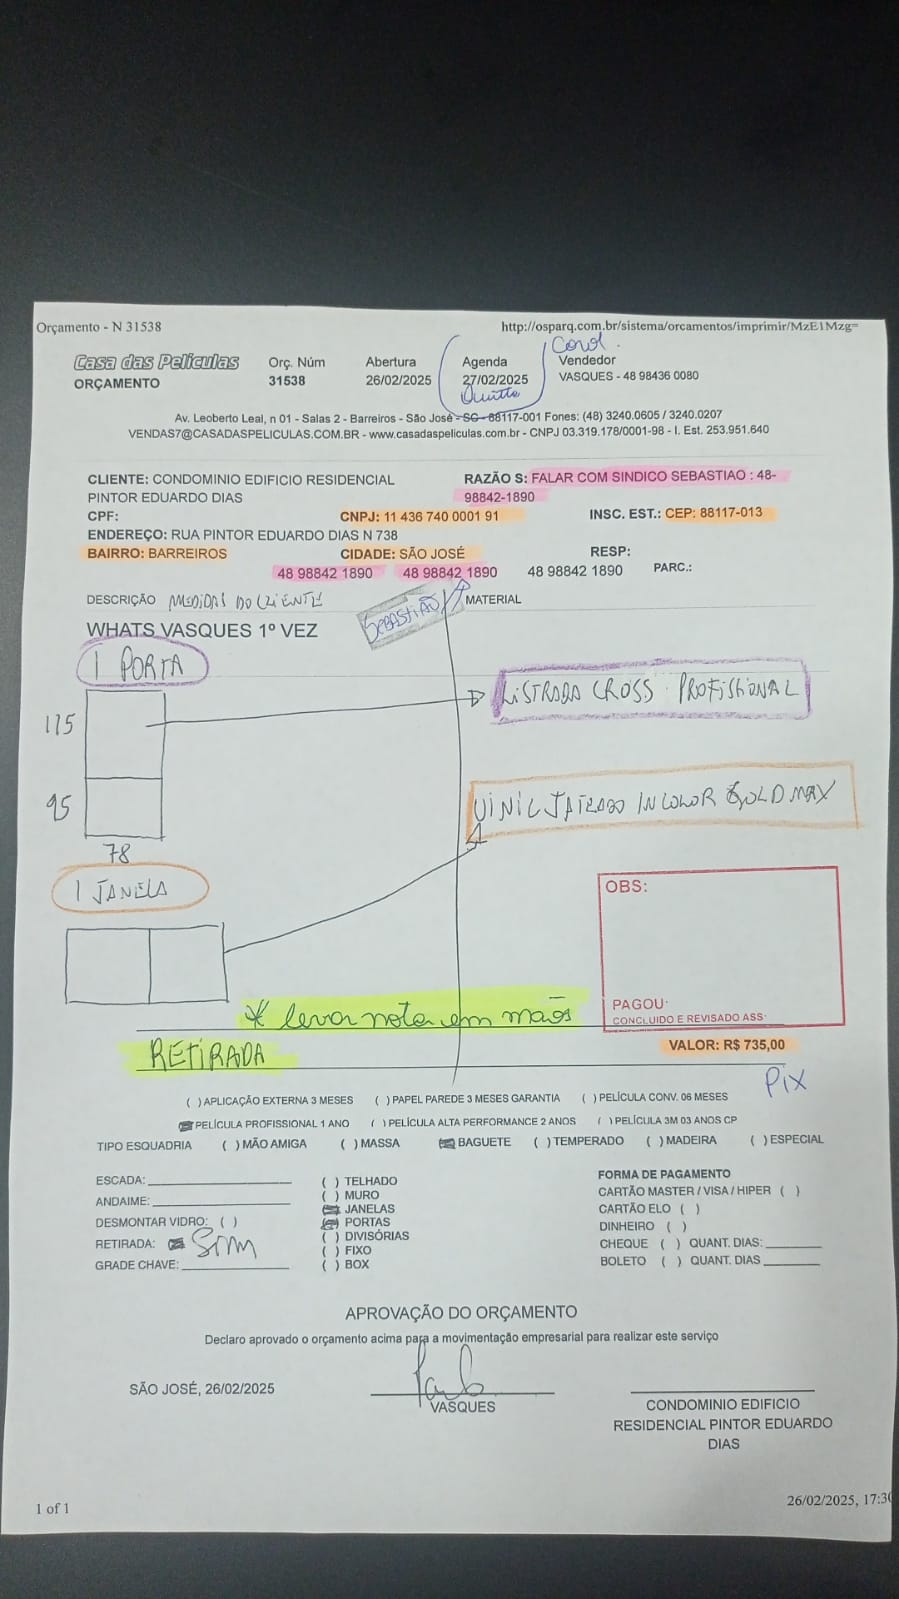 Orçamento - N 31538
http://osparq.com.br/sistema/orcamentos/imprimir/MzE1Mzg=
Casa das Películas
ORÇAMENTO
Orç. Núm
31538
Abertura
26/02/2025
Agenda
27/02/2025
Vendedor
VASQUES - 48 98436 0080
Av. Leoberto Leal, n 01 - Salas 2 - Barreiros - São José - SC - 88117-001 Fones: (48) 3240.0605 / 3240.0207
VENDAS7@CASADASPELICULAS.COM.BR - www.casadaspeliculas.com.br - CNPJ 03.319.178/0001-98 - I. Est. 253.951.640
CLIENTE: CONDOMINIO EDIFICIO RESIDENCIAL
PINTOR EDUARDO DIAS
RAZÃO S: FALAR COM SINDICO SEBASTIAO : 48-
98842-1890
CPF:
CNPJ: 11 436 740 0001 91
INSC. EST.: CEP: 88117-013
ENDEREÇO: RUA PINTOR EDUARDO DIAS N 738
BAIRRO: BARREIROS
CIDADE: SÃO JOSÉ
RESP:
48 98842 1890 48 98842 1890 48 98842 1890 PARC.:
DESCRIÇÃO MEDIDAS DO CLIENTE
SEBASTIÃO
MATERIAL
WHATS VASQUES 1º VEZ
1 PORTA
LISTRADA CROSS PROFISSIONAL
115
95
78
VINIL JATEADO INCOLOR GOLD MAX
1 JANELA
OBS:
PAGOU:
CONCLUIDO E REVISADO ASS:
* levar nota em mãos
RETIRADA
VALOR: R$ 735,00
PIX
( ) APLICAÇÃO EXTERNA 3 MESES ( ) PAPEL PAREDE 3 MESES GARANTIA ( ) PELÍCULA CONV. 06 MESES
PELÍCULA PROFISSIONAL 1 ANO ( ) PELÍCULA ALTA PERFORMANCE 2 ANOS ( ) PELÍCULA 3M 03 ANOS CP
TIPO ESQUADRIA ( ) MÃO AMIGA ( ) MASSA BAGUETE ( ) TEMPERADO ( ) MADEIRA ( ) ESPECIAL
ESCADA:
ANDAIME:
DESMONTAR VIDRO: ( )
RETIRADA: Sim
GRADE CHAVE:
( ) TELHADO
( ) MURO
JANELAS
PORTAS
( ) DIVISÓRIAS
( ) FIXO
( ) BOX
FORMA DE PAGAMENTO
CARTÃO MASTER / VISA / HIPER ( )
CARTÃO ELO ( )
DINHEIRO ( )
CHEQUE ( ) QUANT. DIAS:
BOLETO ( ) QUANT. DIAS
APROVAÇÃO DO ORÇAMENTO
Declaro aprovado o orçamento acima para a movimentação empresarial para realizar este serviço
SÃO JOSÉ, 26/02/2025
VASQUES
CONDOMINIO EDIFICIO
RESIDENCIAL PINTOR EDUARDO
DIAS
1 of 1
26/02/2025, 17:3